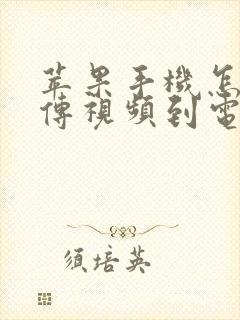 苹果手機怎
傳視頻到電
須培英